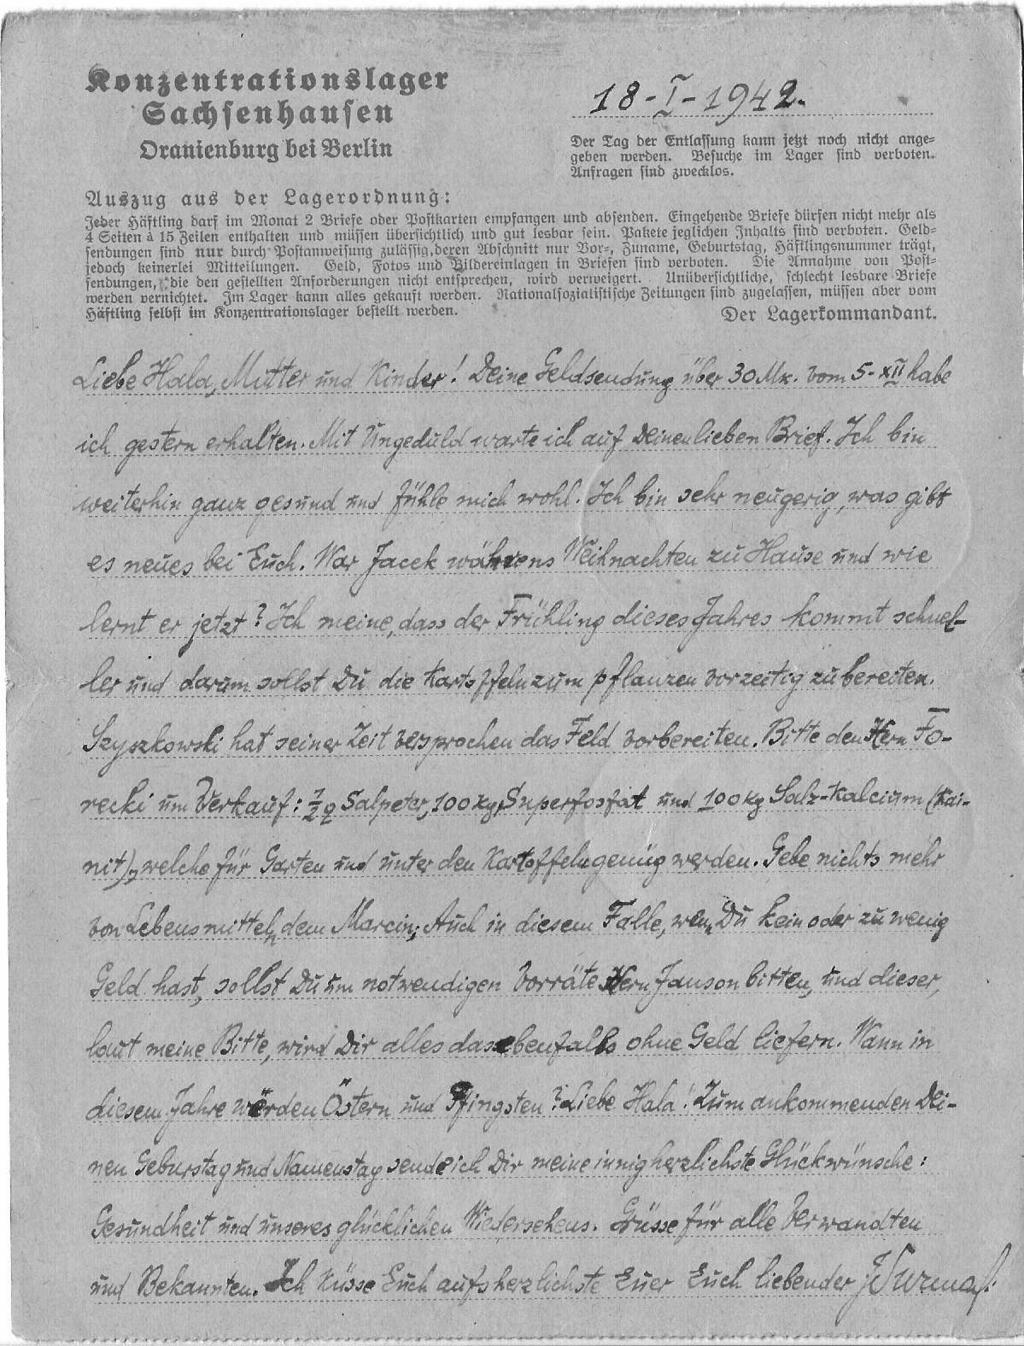 Konzentrationslager
Sachsenhausen
Oranienburg bei Berlin
18-I-1942.
Der Tag der Entlassung kann jetzt noch nicht ange-
geben werden. Besuche im Lager sind verboten.
Anfragen sind zwecklos.
Auszug aus der Lagerordnung:
Jeder Häftling darf im Monat 2 Briefe oder Postkarten empfangen und absenden. Eingehende Briefe dürfen nicht mehr als
4 Seiten à 15 Zeilen enthalten und müssen übersichtlich und gut lesbar sein. Pakete jeglichen Inhalts sind verboten. Geld-
sendungen sind nur durch Postanweisung zulässig, deren Abschnitt nur Vor-, Zuname, Geburtstag, Häftlingsnummer trägt,
jedoch keinerlei Mitteilungen. Geld, Fotos und Bildereinlagen in Briefen sind verboten. Die Annahme von Post-
sendungen, die den gestellten Anforderungen nicht entsprechen, wird verweigert. Unübersichtliche, schlecht lesbare Briefe
werden vernichtet. Im Lager kann alles gekauft werden. Nationalsozialistische Zeitungen sind zugelassen, müssen aber vom
Häftling selbst im Konzentrationslager bestellt werden.
Der Lagerkommandant.
Liebe Hala, Mutter und Kinder! Deine Geldsendung über 30 Mk. vom 5-XII habe
ich gestern erhalten. Mit Ungeduld warte ich auf Deinen lieben Brief. Ich bin
weiterhin ganz gesund und fühle mich wohl. Ich bin sehr neugerig, was gibt
es neues bei Euch. War Jacek währens Weihnachten zu Hause und wie
lernt er jetzt? Ich meine, dass der Frühling dieses Jahres kommt schnel-
ler und darum sollst Du die Kartoffeln zum pflanzen vorzeitig zu bereiten.
Szyszkowski hat seiner Zeit versprochen das Feld vorbereiten. Bitte den Hern Fo-
recki um Verkauf: 1/2 q Salpeter, 100 kg Superfosfat und 100 kg Salz-Kalcium (Kai-
nit), welche für Garten und unter den Kartoffeln genüg werden. Gebe nichts mehr
von Lebensmitteln dem Marcin; Auch in diesem Falle, wenn Du kein oder zu wenig
Geld hast, sollst Du um notwendigen Vorräte Hern Janson bitten, und dieser,
laut meine Bitte, wird Dir alles das ebenfalls ohne Geld liefern. Wann in
diesem Jahre werden Östern und Pfingsten? Liebe Hala! Zum ankommenden Dei-
nen Geburstag und Namenstag sende ich Dir meine innigherzlichste Glückwünsche:
Gesundheit und unseres glücklichen Wiedersehens. Grüsse für alle Verwandten
und Bekannten. Ich küsse Euch aufs herzlichste Euer Euch liebender